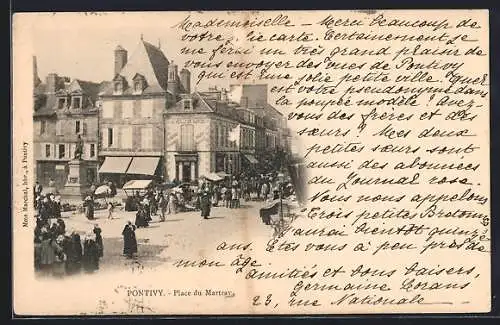 Mademoiselle - Merci beaucoup de
votre jolie carte. Certainement je
me ferai un vrai grand plaisir de
vous envoyer des vues de Pontivy
qui est une jolie petite ville. Quel
est votre pseudonyme dans
la poupée modèle? Avez-
vous des frères et des
sœurs? Mes deux
petites sœurs sont
aussi des abonnées
du Journal rose.
Nous nous appelons
Trois petites Bretonnes
J'aurai bientôt quinze
ans. Etes vous à peu près de
mon âge
Amitiés et bons baisers,
Germaine
23, rue Nationale
Mme Marchal, libr., à Pontivy
PONTIVY. - Place du Martray